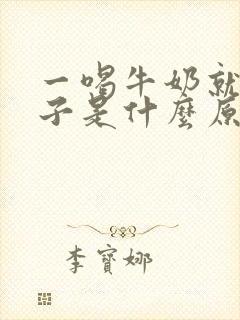 一喝牛奶就
子是什麼原
李寶娜